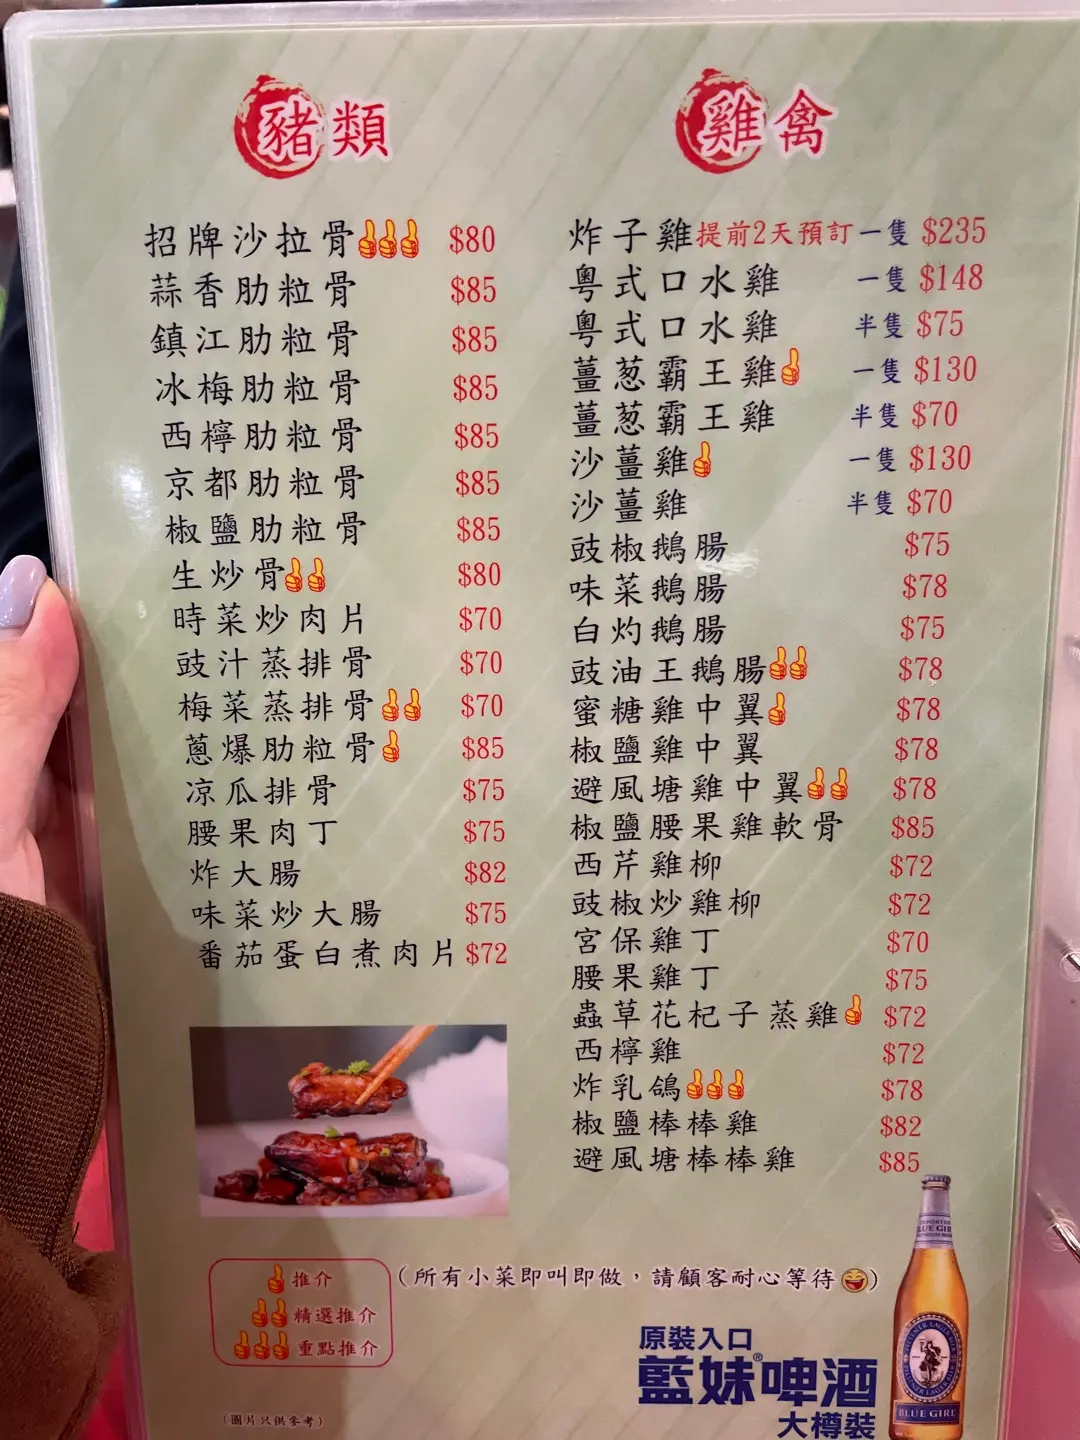 豬類
招牌沙拉骨 $80
蒜香肋粒骨 $85
鎮江肋粒骨 $85
冰梅肋粒骨 $85
西檸肋粒骨 $85
京都肋粒骨 $85
椒鹽肋粒骨 $85
生炒骨 $80
時菜炒肉片 $70
豉汁蒸排骨 $70
梅菜蒸排骨 $70
蔥爆肋粒骨 $85
凉瓜排骨 $75
腰果肉丁 $75
炸大腸 $82
味菜炒大腸 $75
番茄蛋白煮肉片 $72
雞禽
炸子雞提前2天預訂 一隻 $235
粵式口水雞 一隻 $148
粵式口水雞 半隻 $75
薑葱霸王雞 一隻 $130
薑葱霸王雞 半隻 $70
沙薑雞 一隻 $130
沙薑雞 半隻 $70
豉椒鵝腸 $75
味菜鵝腸 $78
白灼鵝腸 $75
豉油王鵝腸 $78
蜜糖雞中翼 $78
椒鹽雞中翼 $78
避風塘雞中翼 $78
椒鹽腰果雞軟骨 $85
西芹雞柳 $72
豉椒炒雞柳 $72
宮保雞丁 $70
腰果雞丁 $75
蟲草花杞子蒸雞 $72
西檸雞 $72
炸乳鴿 $78
椒鹽棒棒雞 $82
避風塘棒棒雞 $85
推介
精選推介
重點推介
（所有小菜即叫即做，請顧客耐心等待😄）
原裝入口
藍妹®啤酒
大樽裝
BLUE GIRL
（圖片只供參考）